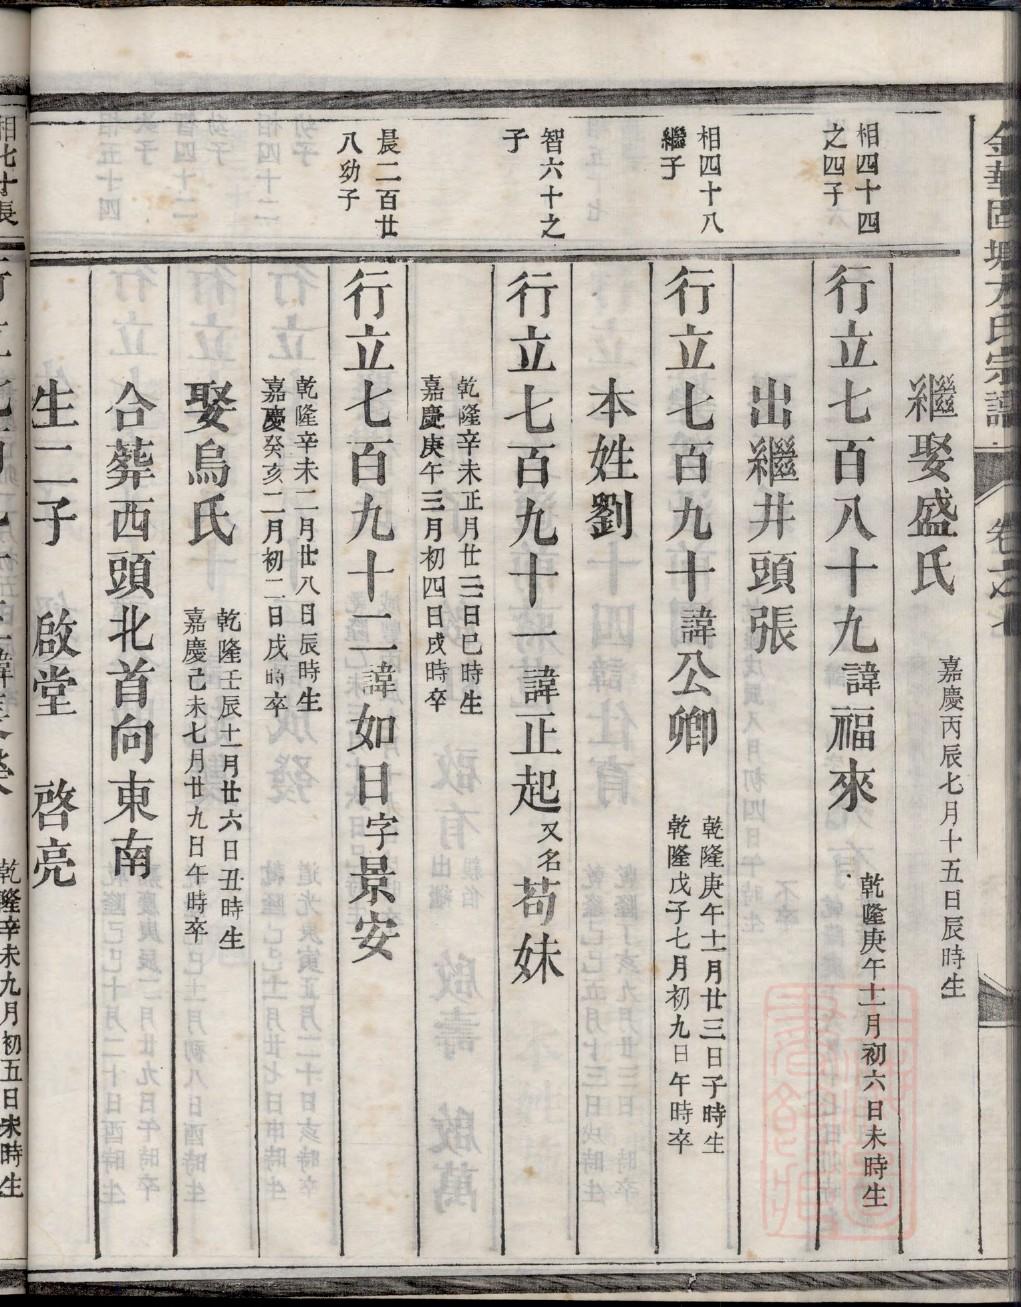 繼娶盛氏
嘉慶丙辰七月十五日辰時生
相四十四
之四子
行立七百八十九諱福來
乾隆庚午十一月初六日未時生
出繼井頭張
相四十八
繼子
行立七百九十諱公卿
乾隆庚午十一月廿三日子時生
乾隆戊子七月初九日午時卒
本姓劉
智六十之
子
行立七百九十一諱正起又名苟妹
乾隆辛未正月廿三日巳時生
嘉慶庚午三月初四日戌時卒
晨二百廿
八幼子
行立七百九十二諱如日字景安
乾隆辛未二月廿八日辰時生
嘉慶癸亥二月初二日戌時卒
娶烏氏
乾隆壬辰十一月廿六日丑時生
嘉慶己未七月廿九日午時卒
合葬西頭北首向東南
生二子　啟堂　啓亮
乾隆辛未九月初五日未時生